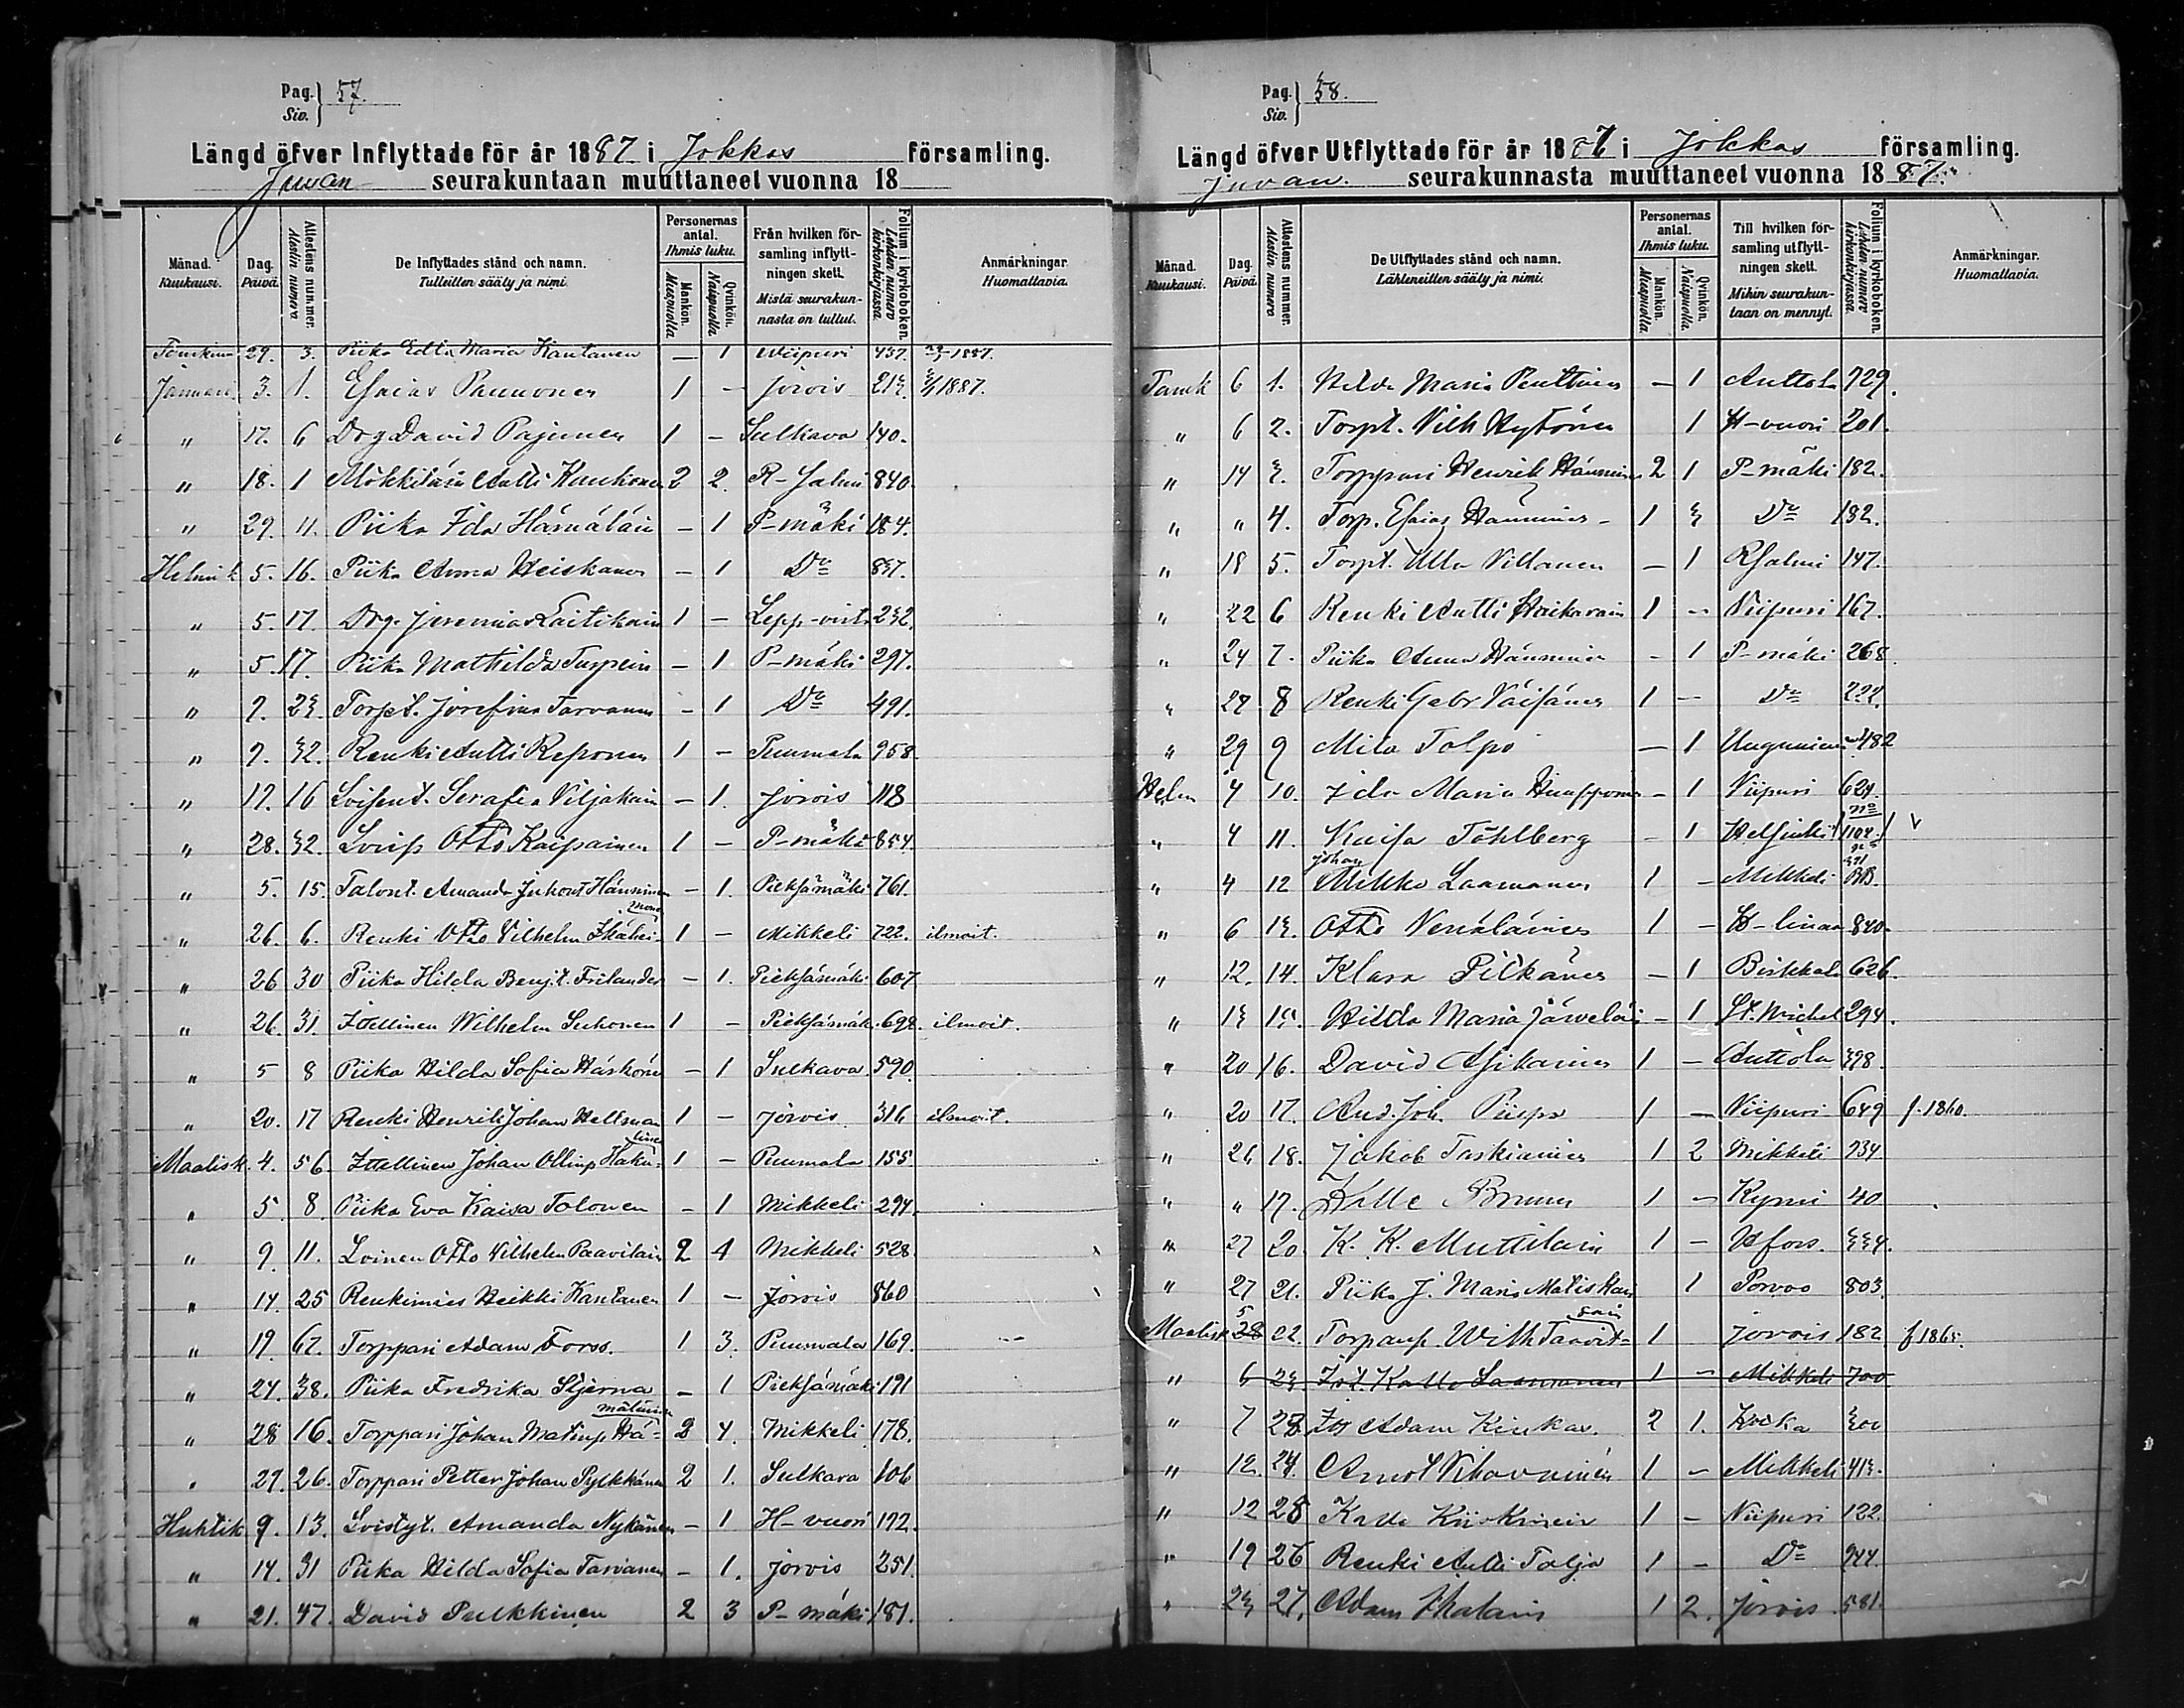 Pag. Siv. } 57.
Längd öfver Inflyttade för år 1887 i Jokkas församling.
Juvan seurakuntaan muuttaneet vuonna 18
Månad. Kuukausi.
Dag. Päivä.
Attestens nummer. Alestin numero
De Inflyttades stånd och namn. Tulleitten sääty ja nimi.
Personernas antal. Ihmis luku.
Mankön. Miespuolia
Qvinkön. Naispuolia
Från hvilken församling inflyttningen skett. Mistä seurakunnasta on tullut.
Folium i kyrkoboken. Lehden numero kirkonkirjassa.
Anmärkningar. Huomattavia.
29. 3. Piika Edla Maria Kautanen — 1 Wiipuri 437.
Januari 3. 1. Esaias Paunonen 1 — Jorois 213. 1887.
" 17. 6 Drg David Pajunen 1 — Sulkava 140.
" 18. 1 Mökkiläin Antti Kuukonen 2 2. R-Salmi 840.
" 29. 11. Piika Ida Hämäläin — 1 P-mäki 184.
Helmik 5. 16. Piika Anna Heiskanen — 1 Do 837.
" 5. 17. Drg. Jeremias Laitikain 1 — Lepp-virt 232.
" 5. 17. Piika Mathilda Turpein — 1 P-mäki 297.
" 7. 23. Torpt. Josefina Tarvanen — 1 Do 491.
" 7. 32. Renki Antti Reponen 1 — Puumala 958.
" 17. 16 Loisent. Serafia Viljakain — 1. Jorois 118
" 28. 32. Loisp Otto Kaipainen 1 — P-mäki 854.
" 5. 15. Talont. Amanda Juhont Hänninen — 1. Pieksämäki 761.
" 26. 6. Renki Otto Vilhelm Ikähei= monen 1 — Mikkeli 722. ilmoit.
" 26 30 Piika Hilda Benj.t. Frilander — 1. Pieksämäki 607
" 26. 31. Itellinen Wilhelm Suhonen 1 — Pieksämäk. 692. ilmoit.
" 5 8 Piika Hilda Sofia Häskönen — 1 Sulkava 590.
" 20. 17 Renki Henrik Johan Hellman 1 — Jorois 316 ilmoit.
Maalisk. 4. 56. Itellinen Johan Ollinp Haku= linen 1 — Puumala 155.
" 5. 8. Piika Eva Kaisa Tolonen — 1 Mikkeli 294.
" 9. 11. Loinen Otto Vilhelm Paavilain 2 4 Mikkeli 528.
" 14. 25 Renkimies Heikki Kautanen 1 — Jorois 860
" 19. 67. Torppari Adam Forss. 1 3. Puumala 169.
" 24. 38. Piika Fredrika Stjerna — 1 Pieksämäki 191
" 28 16. Torppari Johan Matinp Hä= mäläinen 2 4. Mikkeli 178.
" 29. 26. Torppari Petter Johan Pylkkänen 2 1. Sulkava 106
Huhtik 9. 13. Loistyt. Amanda Nykänen — 1 H-vuori 192.
" 14. 31 Piika Hilda Sofia Tarvanen — 1. Jorois 251.
" 21. 47. David Pulkkinen 2 3 P-mäki 181.
Pag. Siv. } 58.
Längd öfver Utflyttade för år 1887 i Jokkas församling.
Juvan. seurakunnasta muuttaneet vuonna 1887.
Månad. Kuukausi.
Dag. Päivä.
Attestens nummer. Alestin numero
De Utflyttades stånd och namn. Lähteneitten sääty ja nimi.
Personernas antal. Ihmis luku.
Mankön. Miespuolia.
Qvinkön. Naispuolia
Till hvilken församling utflyttningen skett. Mihin seurakuntaan on mennyt.
Folium i kyrkoboken. Lehden numero kirkonkirjassa.
Anmärkningar. Huomattavia.
Tamk 6 1. Hilda Maria Penttinen — 1 Anttola 729.
" 6 2. Torpt. Vilh Hytönen 1 H-vuori 201.
" 14 3. Torppari Henrik Hänninen 2 1 P-mäki 182.
" " 4. Torp. Esaias Hänninen — 1 3 Do 182.
" 18 5. Torpt. Ulla Villanen — 1 RSalmi 147.
" 22 6 Renki Antti Haikarain 1 — Viipuri 167.
" 24 7. Piika Anna Hänninen — 1 P-mäki 268.
" 28 8 Renki Gabr Väisänen 1 — Do 222.
" 29 9 Miia Tolpo — 1 482
Helm 4 10. Ida Maria Humpponen — 1 Viipuri 624.
" 4 11. Kaisa Töhlberg — 1 Helsinki 1104. V
" 4 12 Johan Mikko Laamanen 1 — Mikkeli
" 6 13. Otto Venäläinen 1 — H-linna 840.
" 12. 14. Klara Pitkänen — 1 Birkkala 626.
" 13 15. Hilda Maria Järveläi — 1 St. Michel 294.
" 20 16. David Asikainen 1 — Anttola 398.
" 20 17. And. Joh. Piispa 1 — Viipuri 649 f. 1860.
" 26 18. Jakob Taskiainen 1 2 Mikkeli 234
" " 19. Kalle Brunn 1 — Kymi 40
" 27 20. K. K. Muttilain 1 — Hfors. 334.
" 27 21. Piika J. Maria Matiskai 1 Porvoo 803.
Maalisk 5 28 22. Torparip. Wilh Taavit= sain 1 Jorois 182 f 1865.
" 6 23. Itt. Kalle Laamanen 1 — Mikkeli 700
" 7 23. Adam Kinkar. 2 1. Kotka 300
" 12. 24. Arnot Vihavainen 1 — Mikkeli 413.
" 12 25 Kalle Kiiskinen 1 — Viipuri 122.
" 19 26 Renki Antti Talja 1 — Do 944.
" 23 27. Adam Ikälain 1 2. Jorois 581.